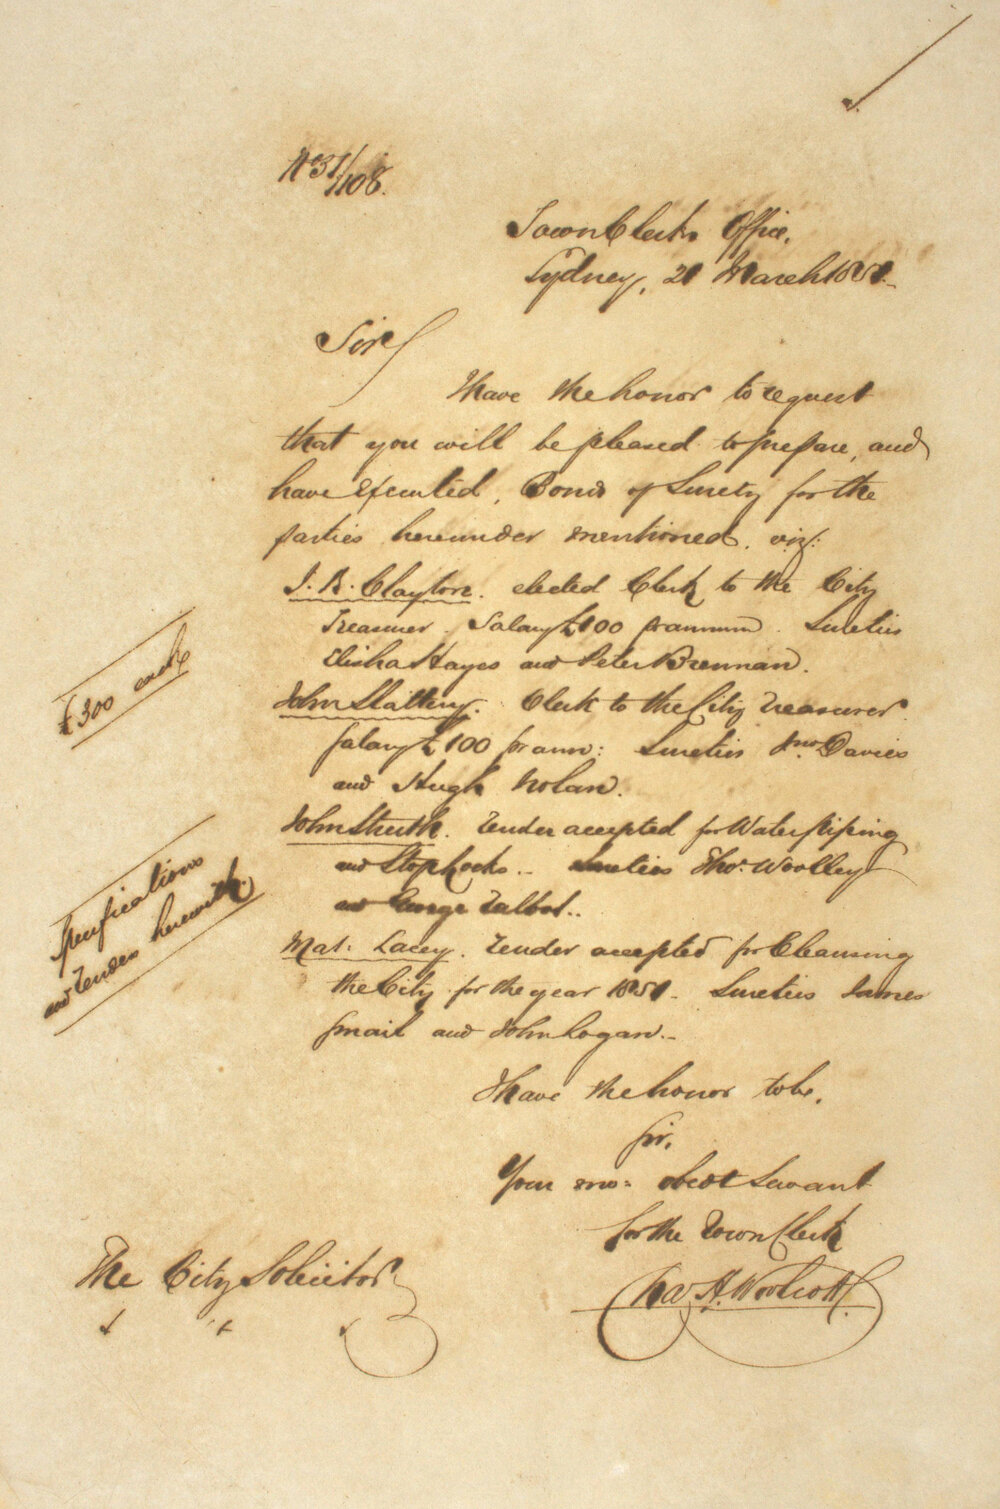 No 51/108.
Town Clerk's Office,
Sydney, 21 March 1851.
Sir,
I have the honor to request
that you will be pleased to prepare, and
have executed, Bonds of Surety for the
parties hereunder mentioned. viz:
J. R. Clayton. elected Clerk to the City
Treasurer. Salary £100 pr annum. Sureties
Elisha Hayes and Peter Brennan.
John Slattery. Clerk to the City Treasurer.
Salary £100 pr ann: Sureties Jno. Davies
and Hugh Nolan.
£300 each
John Struth. Tender accepted for Water piping
and Stop Cocks.. Sureties Thos. Woolley
and George Talbot..
Specifications
and Tender herewith.
Mat: Lacey. Tender accepted for Cleansing
the City for the year 1851. Sureties James
Smail and John Logan.
I have the honor to be,
Sir,
Your mo: obedt Servant
for the Town Clerk
Chas H. Woolcott.
The City Solicitor